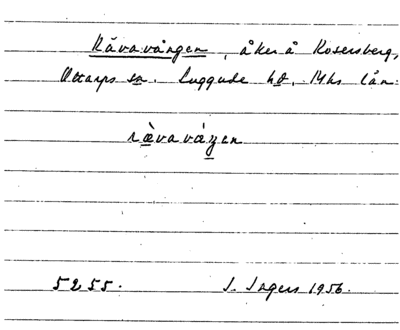 Rävavången, åker å Rosersberg,
Ottarps sn. Luggude hd, Mhs län.
rævavåŋen
5255. S. Ingers 1956.